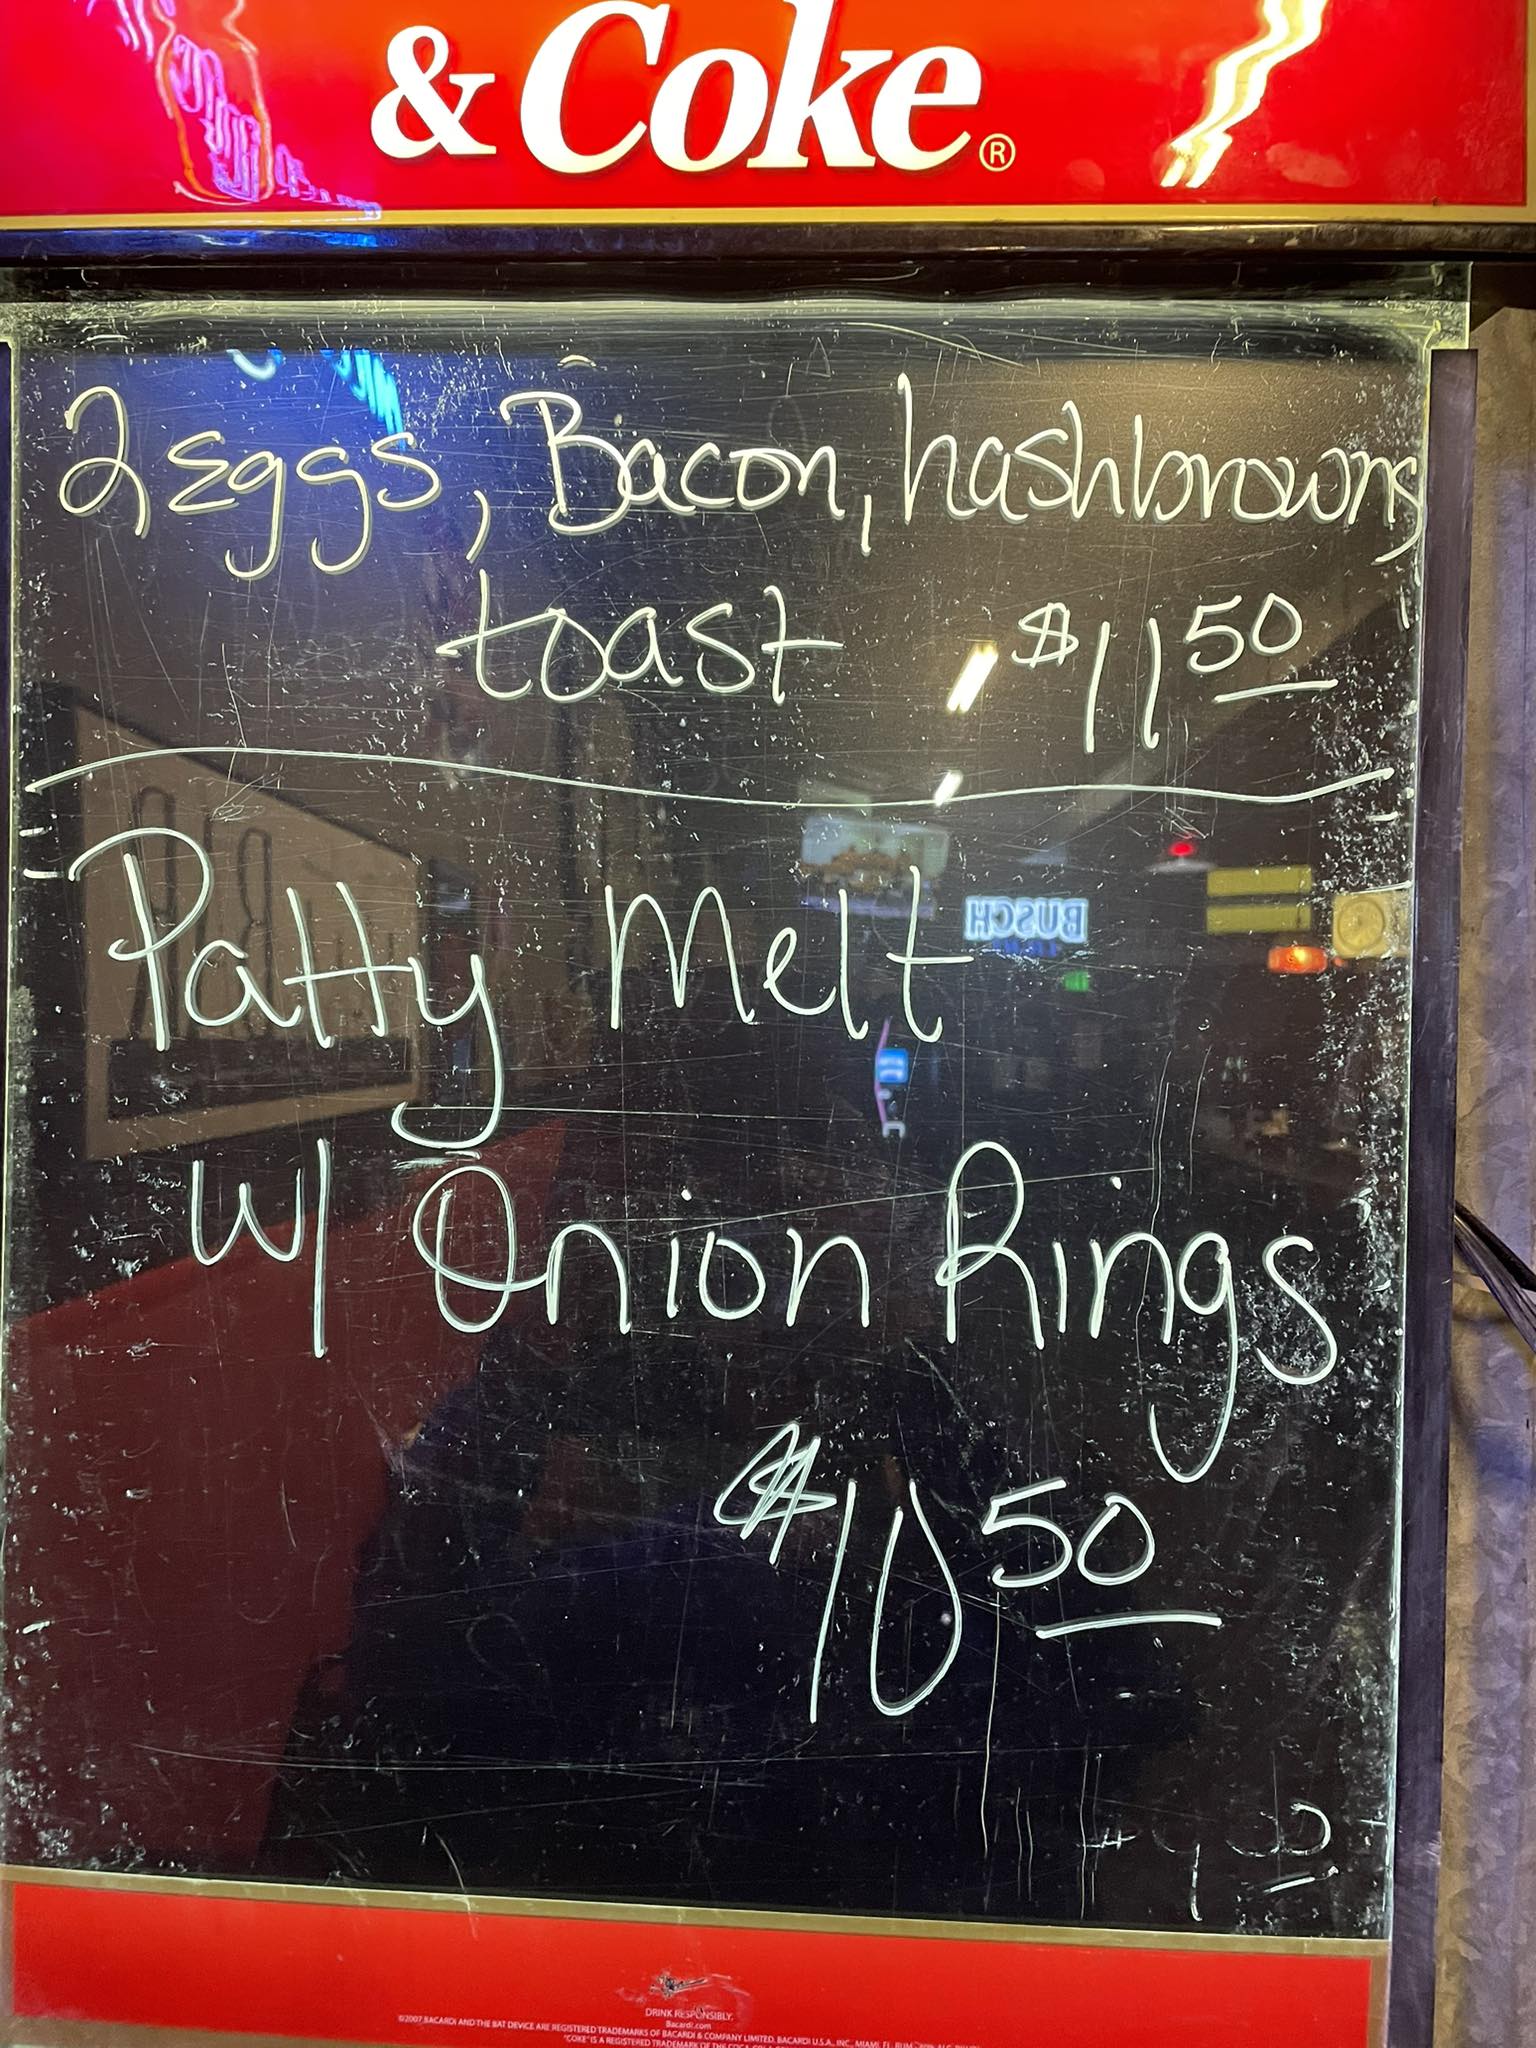 & Coke®
2 Eggs, Bacon, hashbrowns
toast $11 50
Patty Melt
BUSCH
w/ Onion Rings
$10 50
DRINK RESPONSIBLY.
Bacardi.com
©2007 BACARDI AND THE BAT DEVICE ARE REGISTERED TRADEMARKS OF BACARDI & COMPANY LIMITED. BACARDI U.S.A., INC., MIAMI, FL. RUM
"COKE" IS A REGISTERED TRADEMARK OF THE